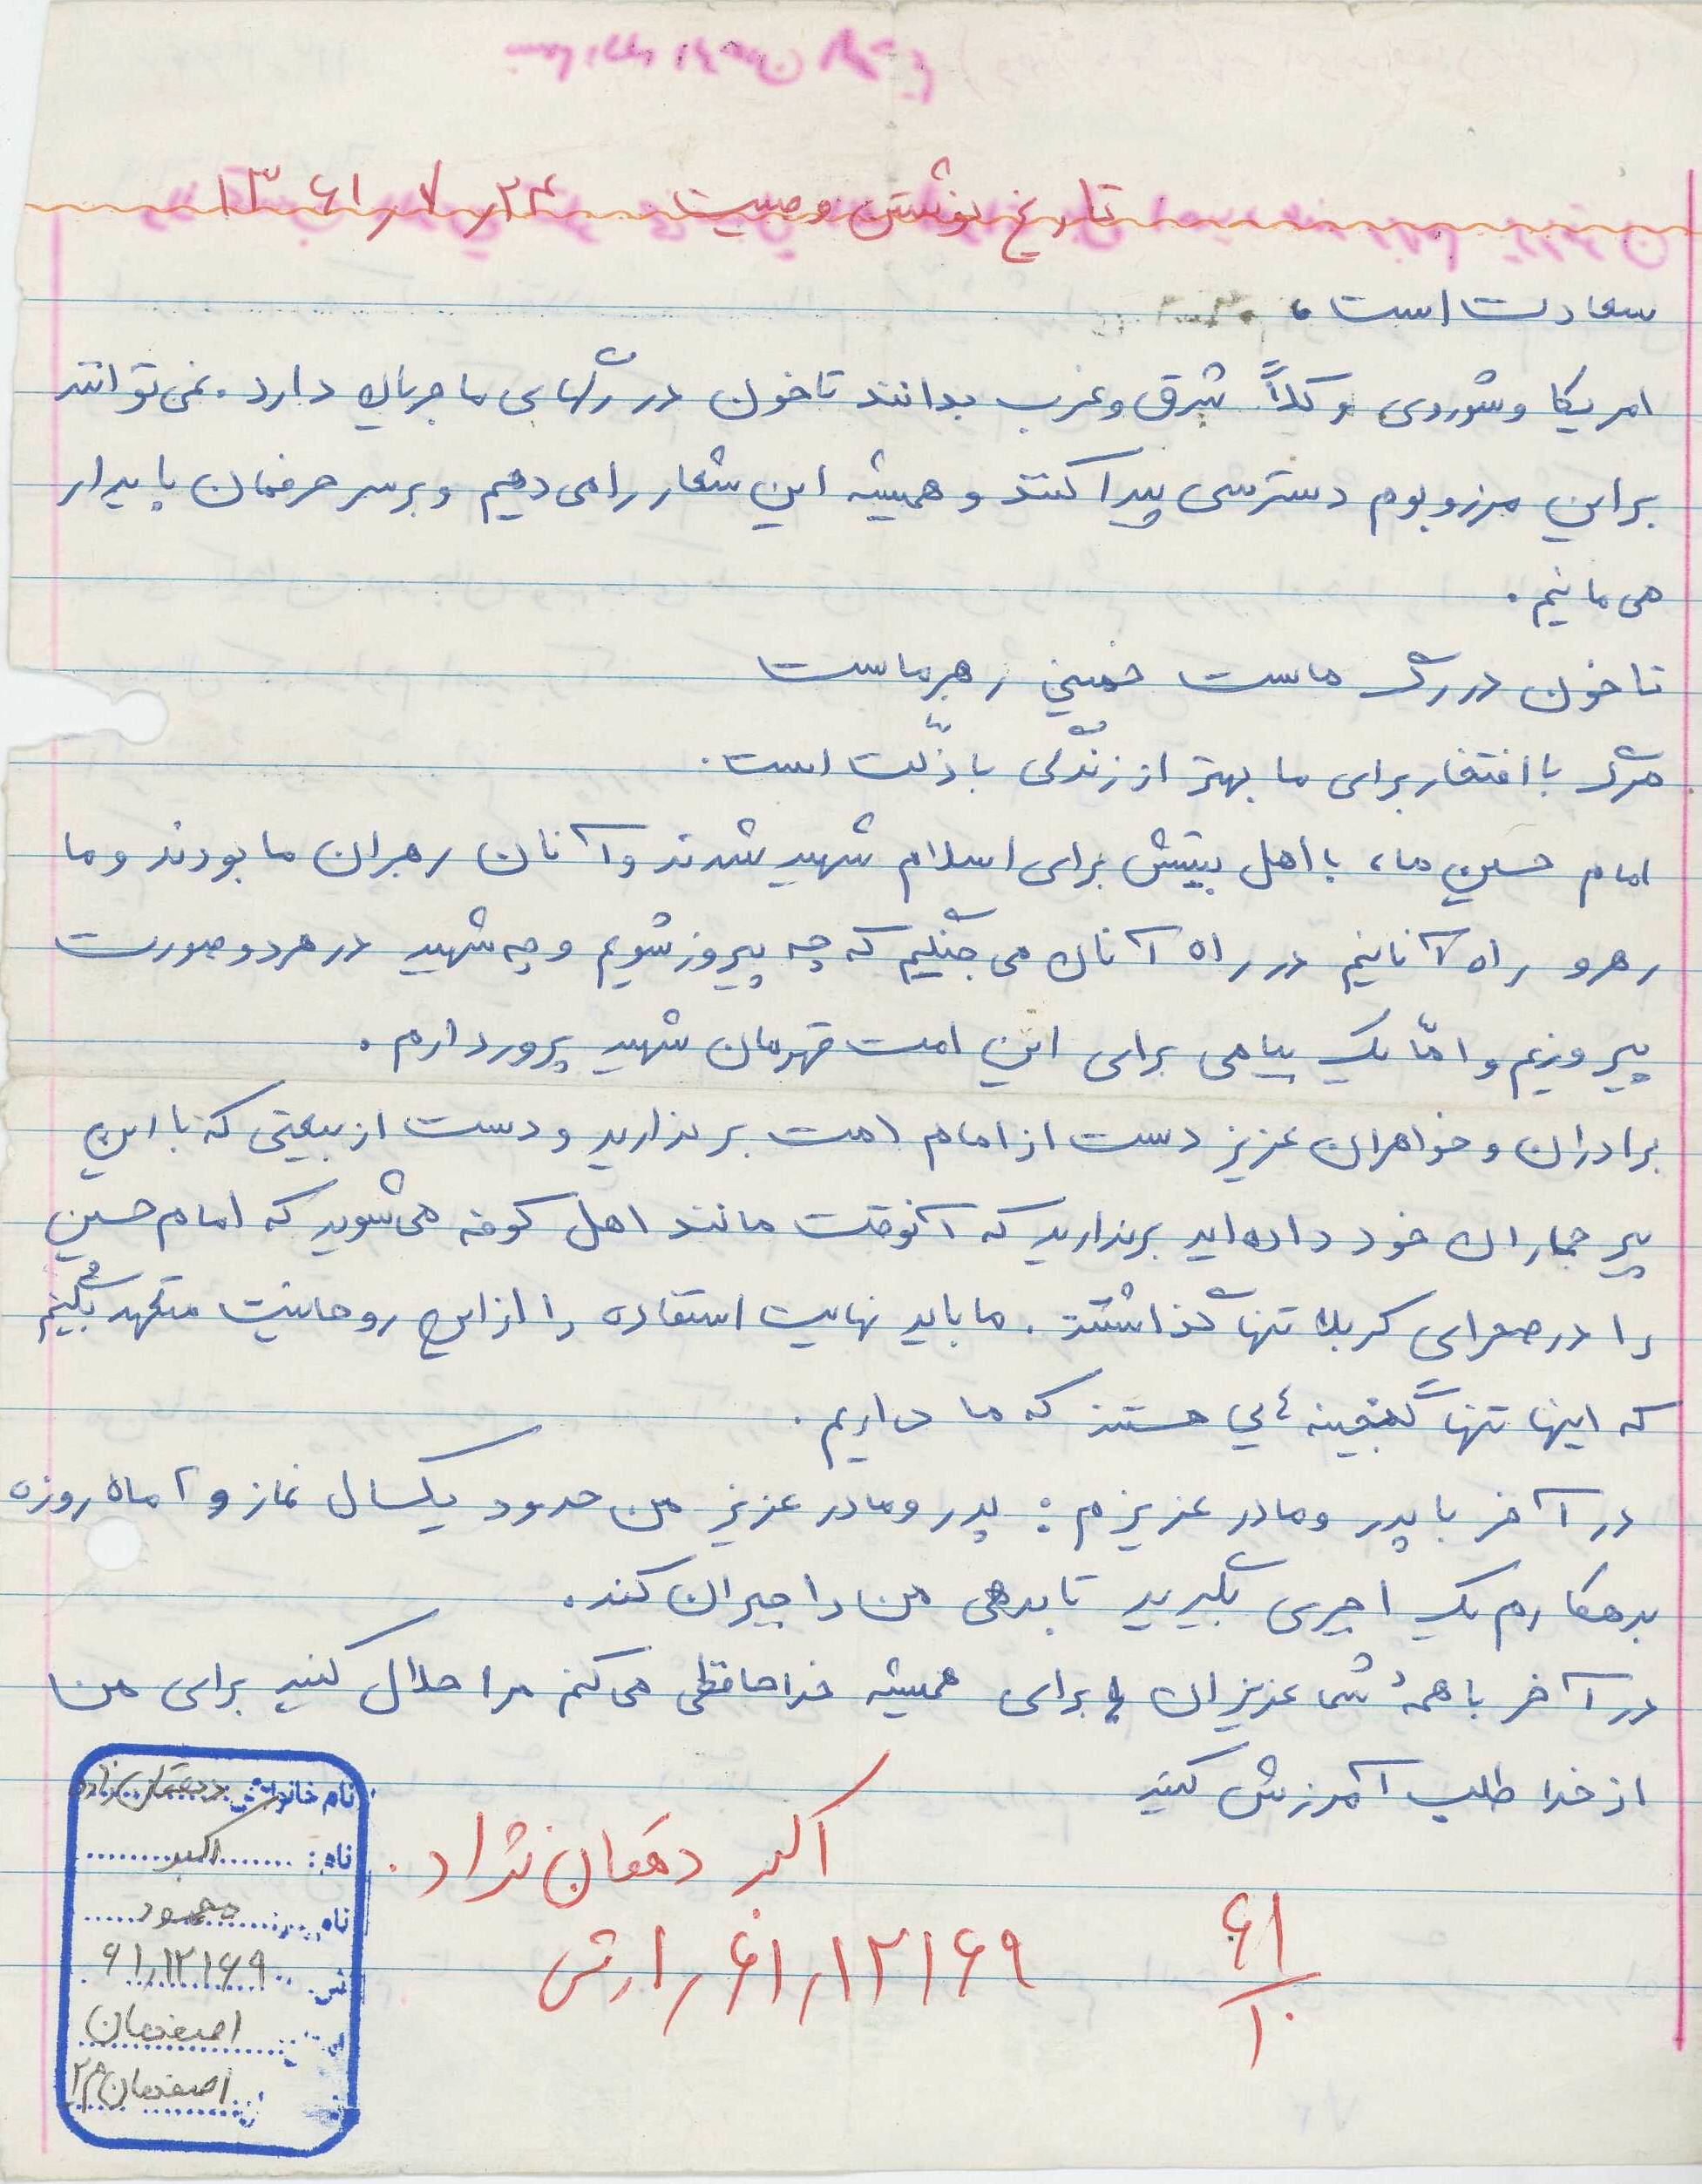 تاریخ نوشتن وصیت ۲۴ر۷ر۱۳۶۱
سعادت است ،
امریکا و شوروی و کلاً شرق و غرب بدانند تا خون در رگهای ما جریان دارد . نمی توانند
بر این مرز و بوم دسترسی پیدا کنند و همیشه این شعار را می دهیم و بر سر حرفمان پایدار
می مانیم .
تا خون در رگ ماست خمینی رهبر ماست
مرگ با افتخار برای ما بهتر از زندگی با ذلّت است .
امام حسین ما ، با اهل بیتش برای اسلام شهید شدند و آنان رهبران ما بودند و ما
رهرو راه آنانیم در راه آنان می جنگیم که چه پیروز شویم و چه شهید در هر دو صورت
پیروزیم و امّا یک پیامی برای این امت قهرمان شهید پرور دارم .
برادران و خواهران عزیز دست از امام امت برندارید و دست از بیعتی که با این
پیر جماران خود داده اید برندارید که آنوقت مانند اهل کوفه می شوید که امام حسین
را در صحرای کربلا تنها گذاشتند . ما باید نهایت استفاده را از این روحانیت متعهد بکنیم
که اینها تنها گنجینه ئی هستند که ما داریم .
در آخر با پدر و مادر عزیزم : پدر و مادر عزیز من حدود یکسال نماز و ۲ ماه روزه
بدهکارم یک اجیری بگیرید تا بدهی من را جبران کند .
در آخر با همهٔ شما عزیزان برای همیشه خداحافظی می کنم مرا حلال کنید برای من
از خدا طلب آمرزش کنید
اکبر دهقان نژاد .
۶۱
۱۰
۱۲۱۶۹ر۶۱ر ارتش
نام خانوادگی دهقان نژاد
نام : اکبر
نام پدر محمود
ش ۶۱ر۱۲۱۶۹
اصفهان
اصفهان ۲۸